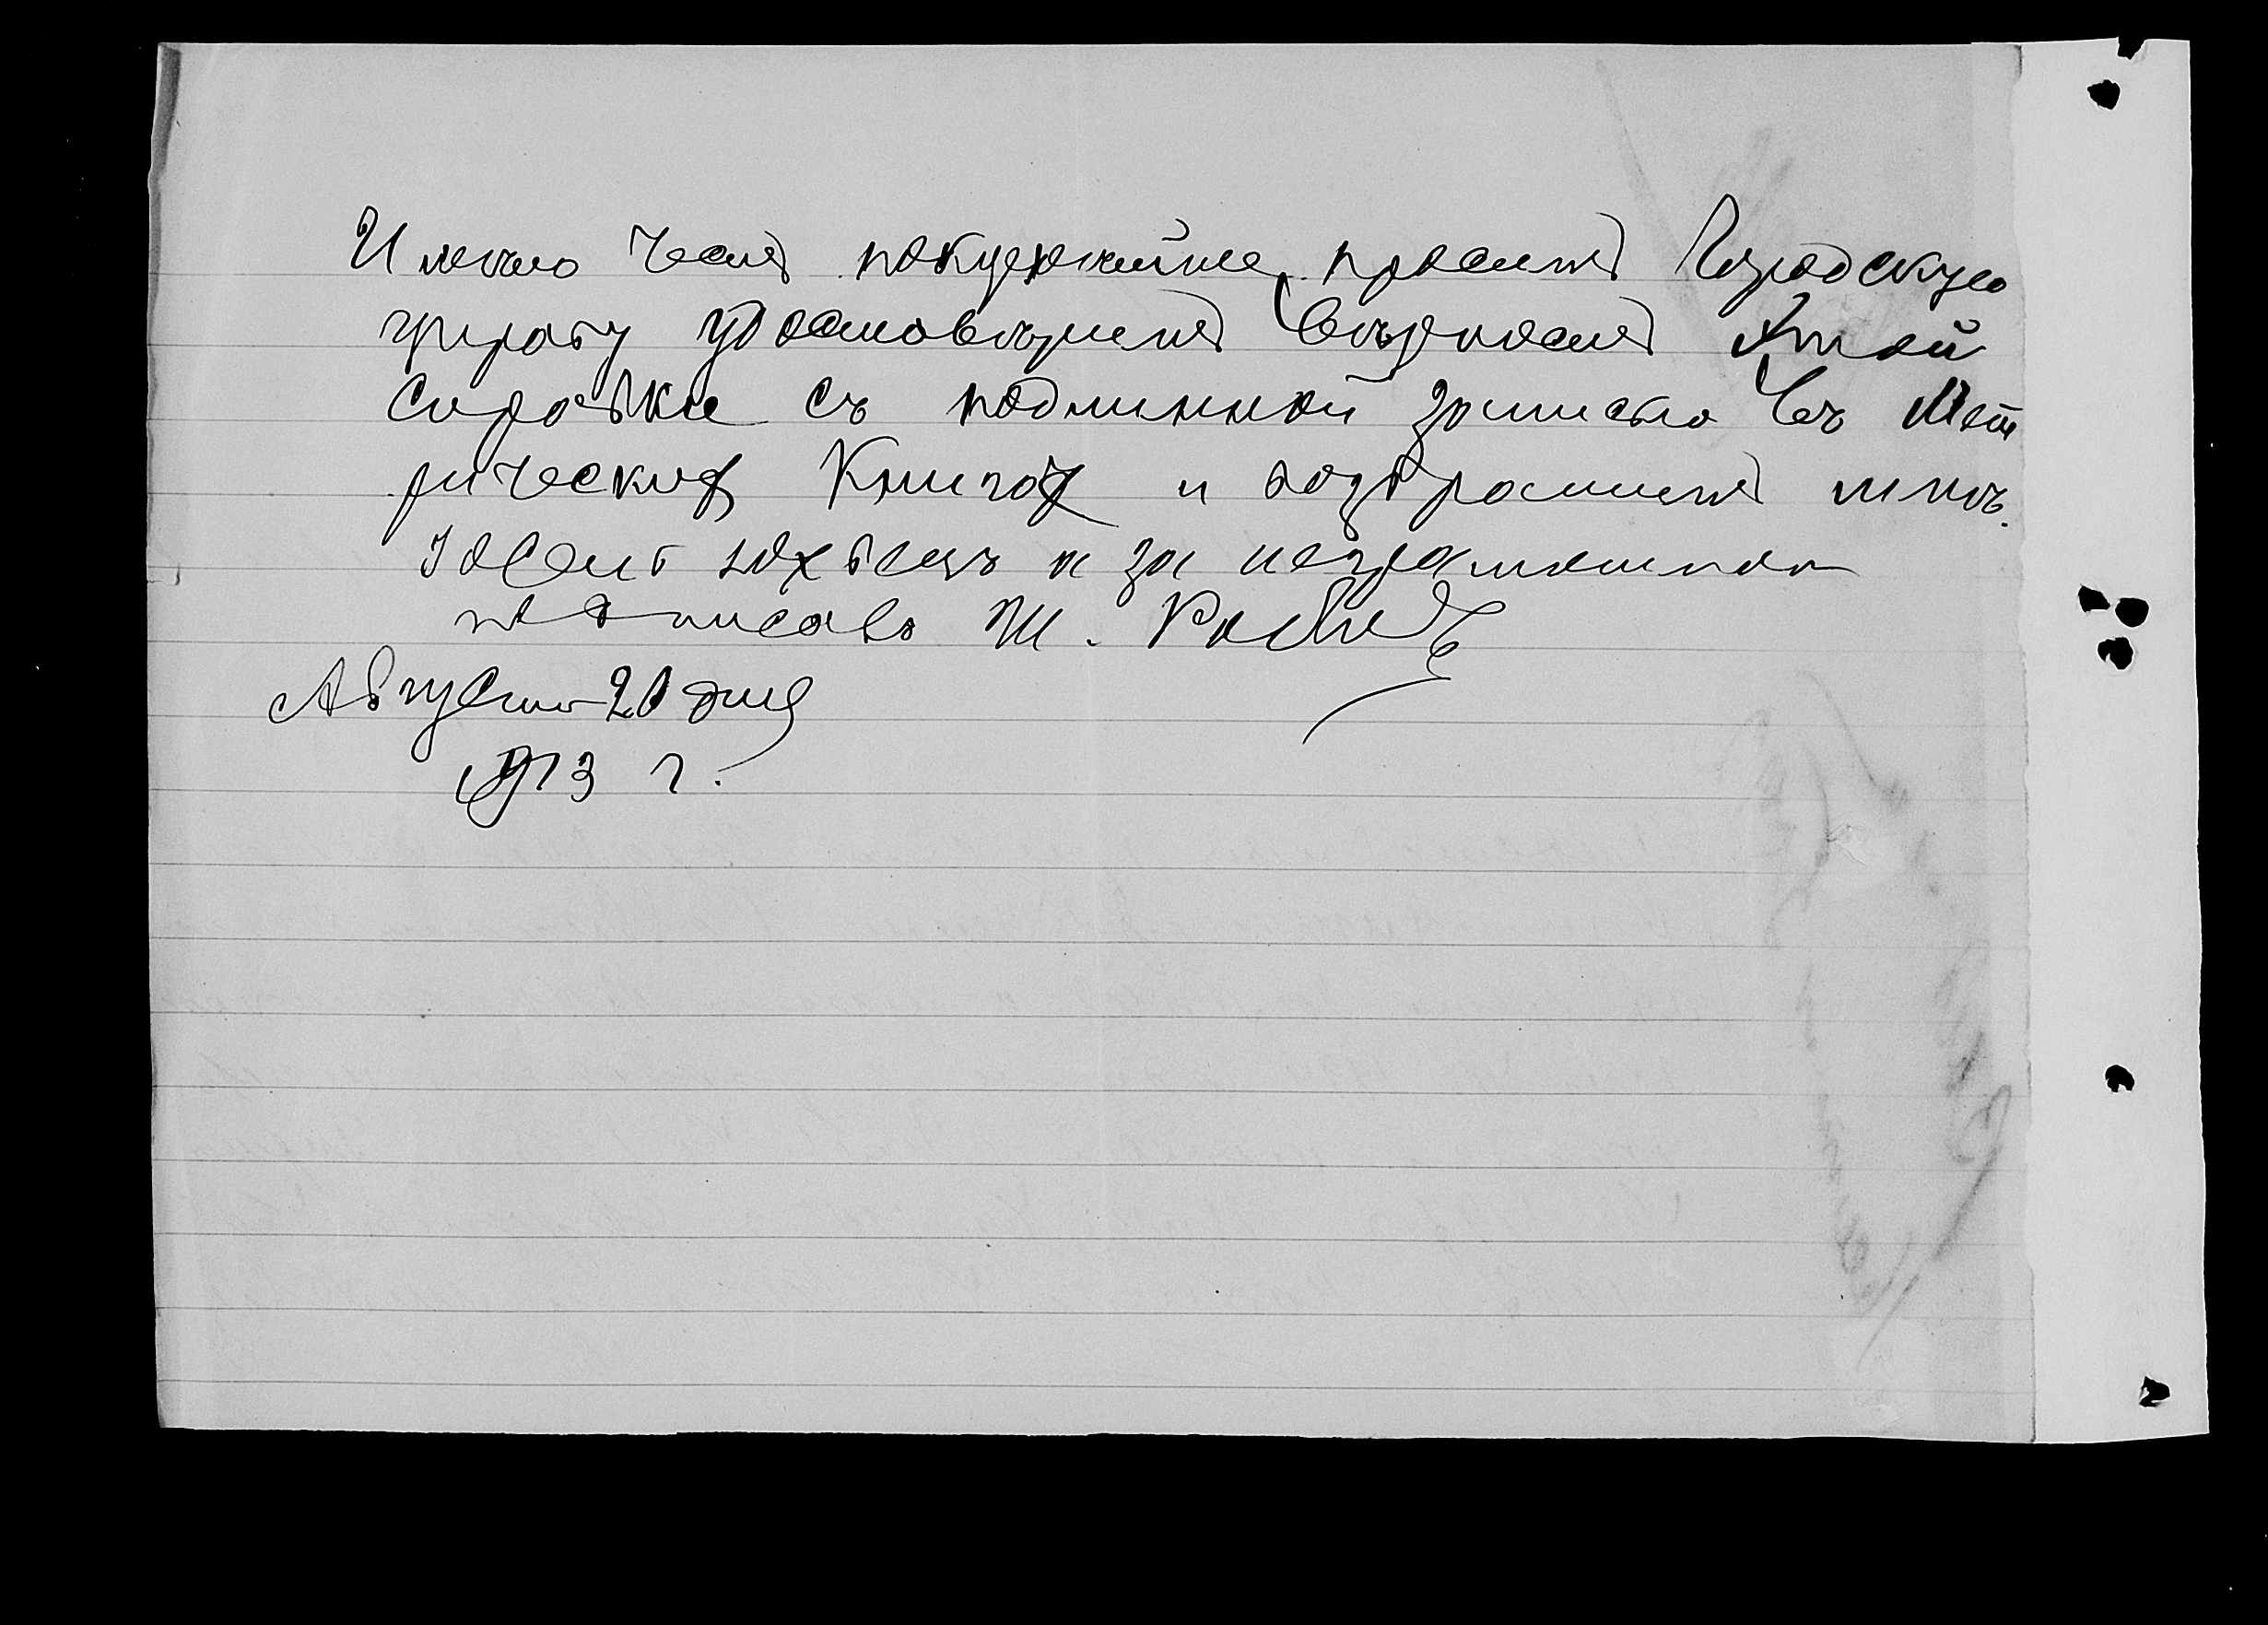 Имею честь покорнейше просить Городскую
управу удостоверить верность этой
справки съ подлинной записью въ Мет
рическихъ Книгахъ и возвратить мнѣ.
и за неграмотнаго
подписалъ Ш.
Августа 20 дня
1913 г.